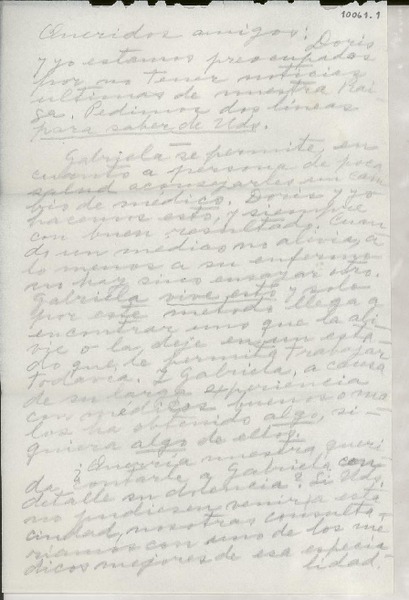 10061.1
Queridos amigos: Doris
y yo estamos preocupadas
por no tener noticias
ultimas de nuestra Rai
sa. Pedimos dos líneas
para saber de Uds.
Gabriela se permite, en
cuanto a persona de poca
salud aconsejarles un cam
bio de medico. Doris y yo
hacemos esto, y siempre
con buen resultado. Cuan
do un medico no alivia, a
lo menos a su enfermo
no hay sino ensayar otro.
Gabriela vive esto y solo
por este metodo llega a
encontrar uno que la ali
vie o la deje en un esta
do que le permita trabajar
todavía. Y Gabriela, a causa
de su larga experiencia
con medicos buenos o ma
los ha obtenido algo, si-
quiera algo de ellos.
¿Querría nuestra queri
da contarle a Gabriela con
detalle su dolencia? Si Uds.
no pudiesen venir a esta
ciudad, nosotras consulta
ríamos con uno de los me
dicos mejores de esa especia
lidad.